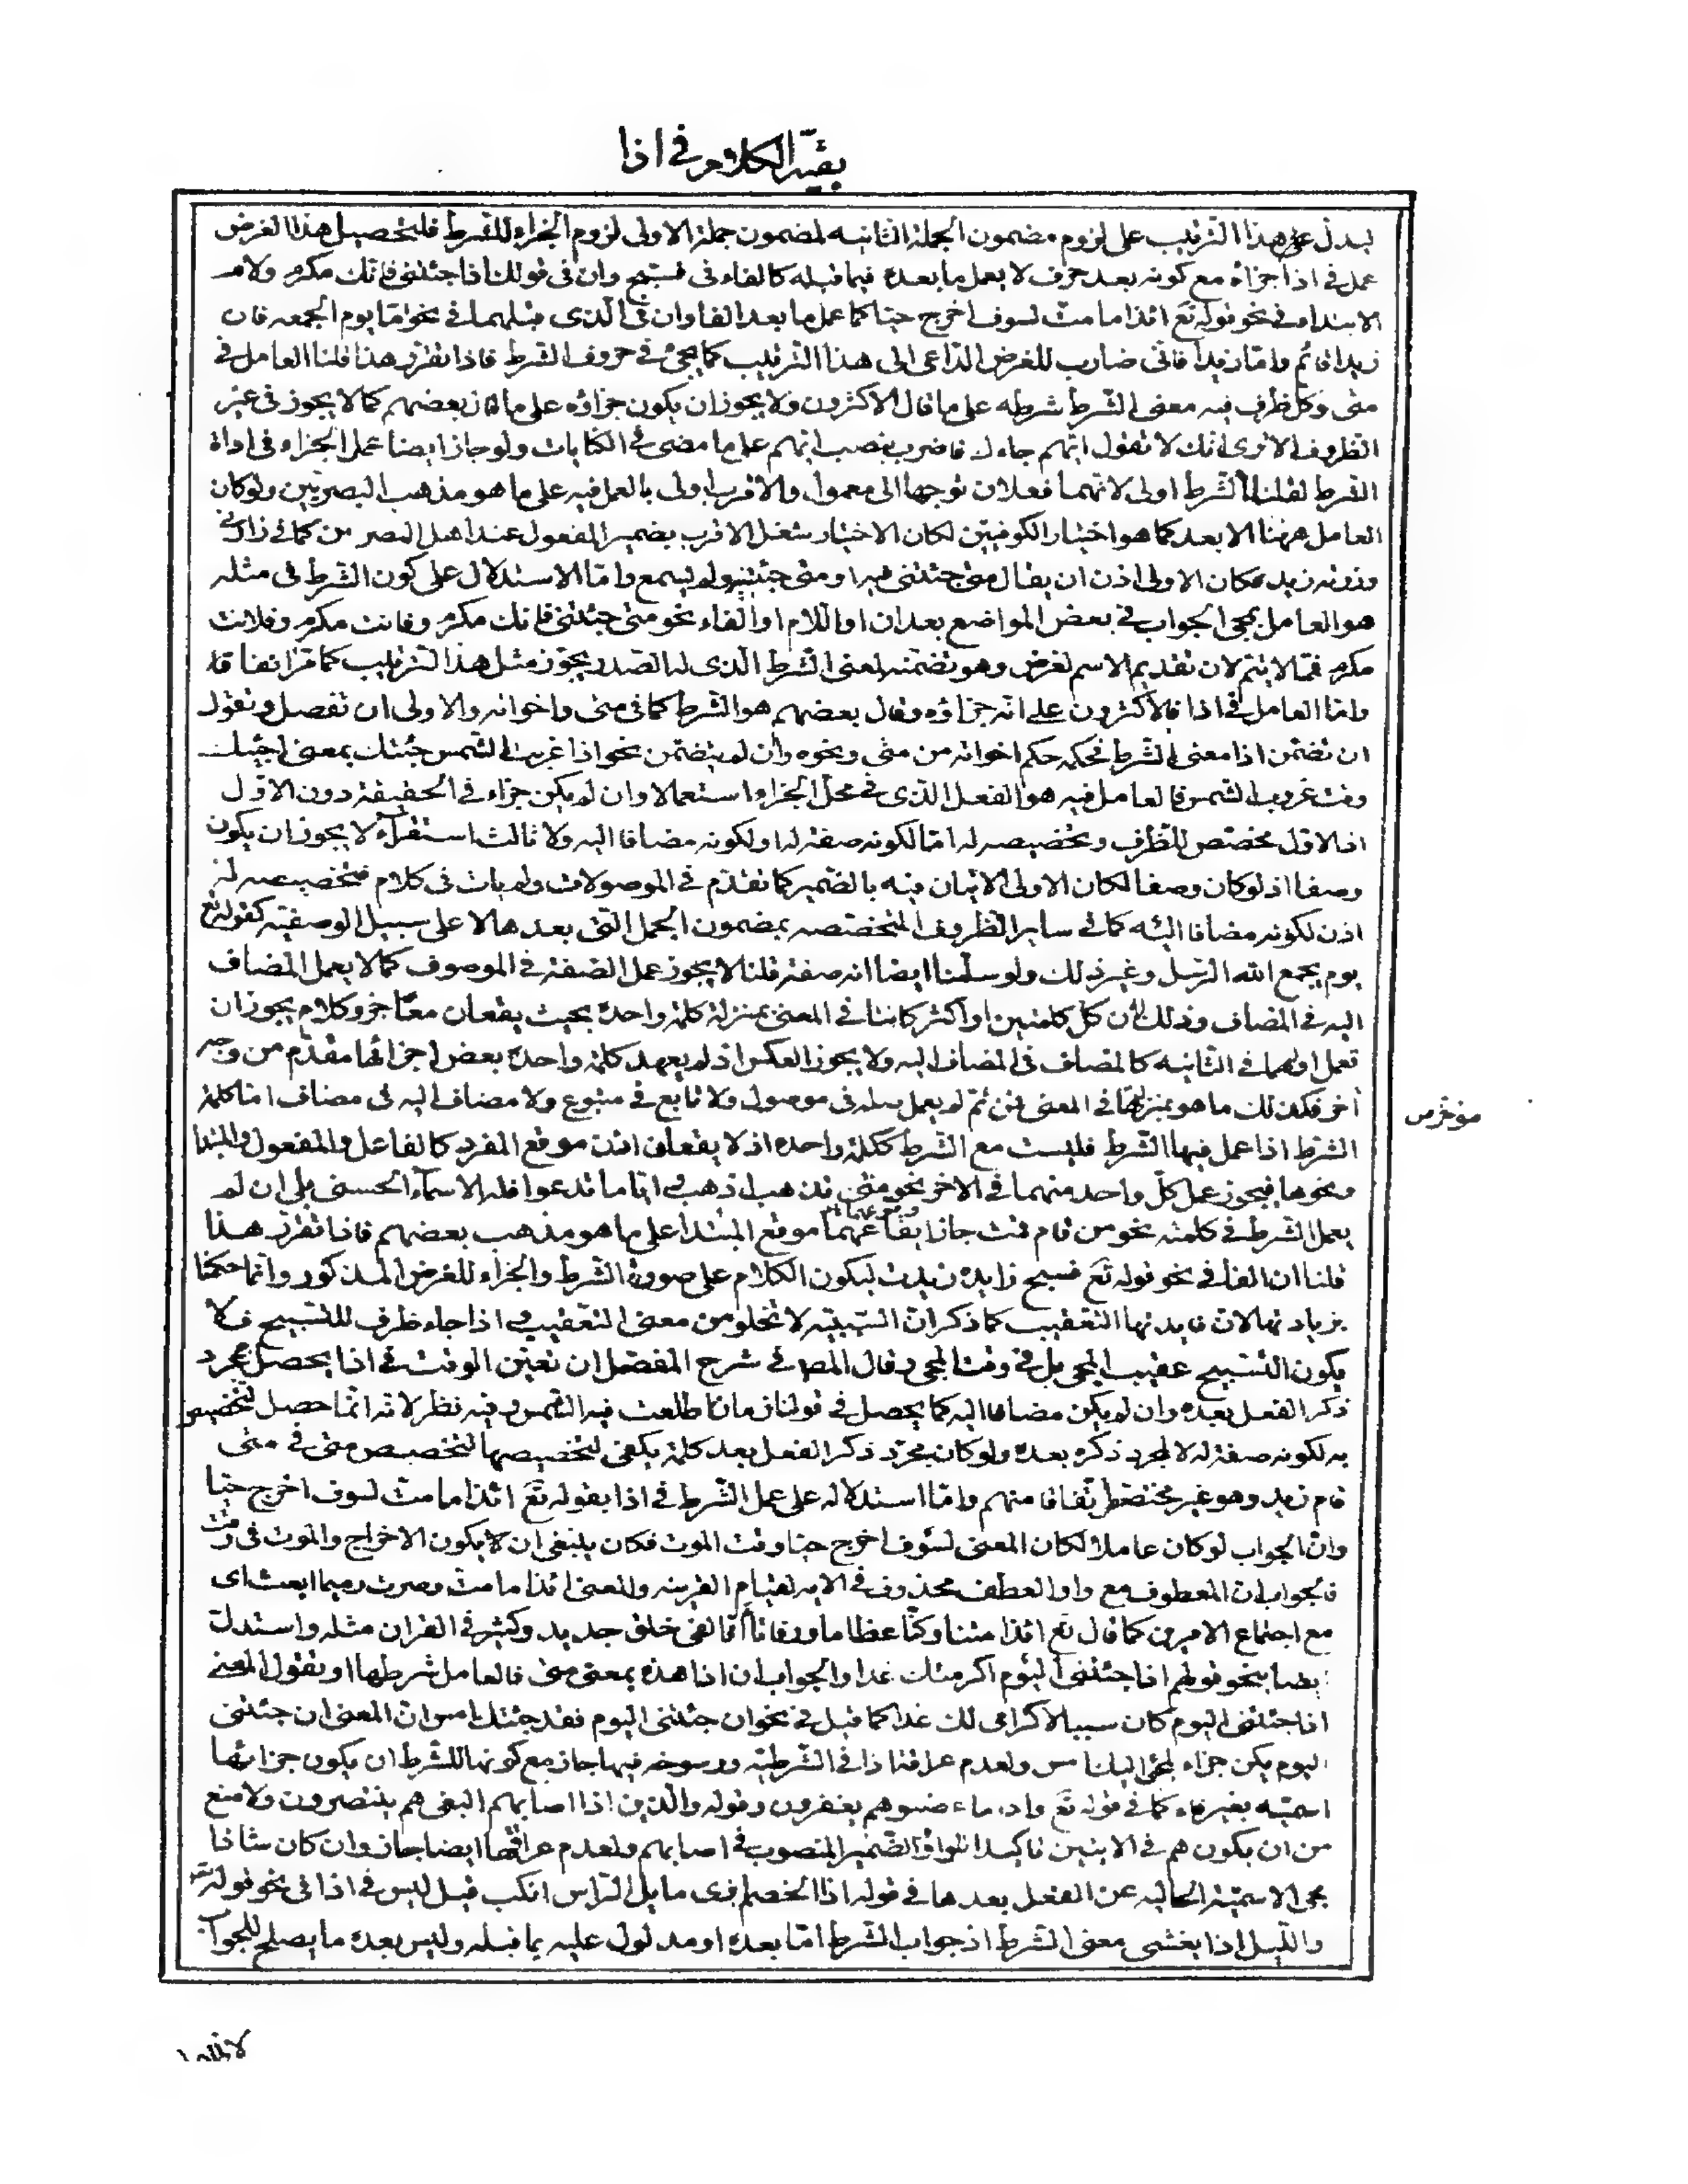 بقية الكلام في اذا
ليدل على هذا الترتيب على لزوم مضمون الجملة الثانيه لمضمون جملة الاولى لزوم الجزاء للشرط فلتحصيل هذا الغرض
عمل في اذا جزاؤه مع كونه بعد حرف لا يعمل ما بعده فيما قبله كالفاء في فسبّح وان في قولك اذا جئتنى فانك مكرم ولام
الابتداء في نحو قوله تع ائذا ما مت لسوف اخرج حيّا كما عمل ما بعد الفا وان في الّذى قبلهما في نحو امّا يوم الجمعه فان
زيدا قائم وامّا زيدا فانى ضارب للغرض الدّاعى الى هذا الترتيب كما يجئ في حروف الشرط فاذا تقرّر هذا قلنا العامل في
متى وكل ظرف فيه معنى الشرط شرطه على ما قال الاكثرون ولا يجوز ان يكون جزاؤه على ما قال بعضهم كما لا يجوز في غير
الظروف الا ترى انك لا تقول ايّهم جاءك فاضرب بنصب ايّهم على ما مضى في الكنايات ولو جاز ايضا عمل الجزاء في اداة
الشرط لقلنا الشرط اولى لانهما فعلان توجها الى معمول والاقرب اولى بالعمل فيه على ما هو مذهب البصريّين ولو كان
العامل ههنا الابعد كما هو اختيار الكوفيّين لكان الاختيار شغل الاقرب بضمير المفعول عند اهل المصرين كما في زارنى
وزرته زيد فكان الاولى اذن ان يقال متى جئتنى فيه او متى جئتنيه ولم يسمع وامّا الاستدلال على كون الشرط في مثله
هو العامل بمجئ الجواب في بعض المواضع بعد ان او اللام او الفاء نحو متى جئتنى فانك مكرم وفانت مكرم وفلانت
مكرم فممّا لا يتم لان تقديم الاسم لغرض وهو تضمّنه لمعنى الشرط الّذى له الصّدر يجوّز مثل هذا الترتيب كما مرّ انفا
وامّا العامل في اذا فالاكثرون على انه جزاؤه وقال بعضهم هو الشرط كما في متى واخواته والاولى ان تفصل وتقول
ان تضمّن اذا معنى الشرط فحكمه حكم اخواته من متى ونحوه وان لم يتضمّن نحو اذا غربت الشمس جئتك بمعنى اجيئك
وقت غروب الشمس فالعامل فيه هو الفعل الّذى في محلّ الجزاء استعمالا وان لم يكن جزاء في الحقيقة دون الاوّل
اذ الاوّل مخصّص للظّرف وتخصيصه له امّا لكونه صفة له او لكونه مضافا اليه ولا ثالث استقراء ولا يجوز ان يكون
وصفا اذ لو كان وصفا لكان الاولى الاتيان فيه بالضمير كما تقدّم في الموصولات ولم يات في كلام فتخصيصه له
اذن لكونه مضافا اليه كما في ساير الظروف المتخصّصه بمضمون الجمل التى بعدها لا على سبيل الوصفيّة كقوله تع
يوم يجمع الله الرّسل وغير ذلك ولو سلّمنا ايضا انه صفة قلنا لا يجوز عمل الصّفة في الموصوف كما لا يعمل المضاف
اليه في المضاف وذلك لان كلّ كلمتين او اكثر كانتا في المعنى بمنزلة كلمة واحدة بحيث يقعان معا جزء كلام يجوز ان
تعمل اولهما في الثانيه كالمضاف في المضاف اليه ولا يجوز العكس اذ لم يعهد كلمة واحدة بعض اجزائها مقدّم من وجه
موخّر من
آخر فكذلك ما هو بمنزلتها في المعنى فمن ثمّ لم يعمل صله في موصول ولا تابع في متبوع ولا مضاف اليه في مضاف امّا كلمة
الشرط اذا عمل فيها الشرط فليست مع الشرط ككلمة واحدة اذ لا يقعان اذن موقع المفرد كالفاعل والمفعول والمبتدا
ونحوها فيجوز عمل كلّ واحد منهما في الاخر نحو متى تذهب اذهب وايّا ما تدعوا فله الاسمآء الحسنى بلى ان لم
يعمل الشرط في كلمته نحو من قام قمت جاز ايقاعهما موقع المبتدا على ما هو مذهب بعضهم فاذا تقرّر هذا
وقوعهما
قلنا ان الفا في نحو قوله تع فسبح زايدة زيدت ليكون الكلام على صورة الشرط والجزاء للغرض المذكور وانّما حكمنا
بزيادتها لان فايدتها التعقيب كما ذكرنا انّ السّببيّة لا تخلو من معنى التعقيب واذا جاء ظرف للتسبيح فلا
يكون التّسبيح عقيب المجئ بل في وقت المجئ وقال المص في شرح المفصّل ان تعيّن الوقت في اذا يحصل بمجرد
ذكر الفعل بعده وان لم يكن مضافا اليه كما يحصل في قولنا زمانا طلعت فيه الشّمس وفيه نظر لانه انّما حصل التّخصيص
به لكونه صفة له لا لمجرد ذكره بعده ولو كان مجرّد ذكر الفعل بعد كلمة يكفى لتخصيصها لتخصص متى في متى
قام زيد وهو غير مخصّص اتّفاقا منهم وامّا استدلاله على عمل الشّرط في اذا بقوله تع ائذا ما مت لسوف اخرج حيا
وانّ الجواب لو كان عاملا لكان المعنى لسوف اخرج حيا وقت الموت فكان ينبغى ان لا يكون الاخراج والموت في وقت
فالجواب ان المعطوف مع واو العطف محذوف في الايه لقيام القرينه والمعنى ائذا ما مت وصرت رميما ابعث اى
مع اجتماع الامرين كما قال تع ائذا متنا وكنّا عظاما ورفاتا أانّا لفى خلق جديد وكثير في القران مثله واستدلّ
ايضا بنحو قولهم اذا جئتنى اليوم اكرمتك غدا والجواب ان اذا هذه بمعنى متى فالعامل شرطها او نقول المعنى
اذا جئتنى اليوم كان سببا لاكرامى لك غدا كما قيل في نحو ان جئتنى اليوم فقد جئتك امس ان المعنى ان جئتنى
اليوم يكن جزاء لمجئ اليك امس ولعدم عراقة اذا في الشّرطيّه ورسوخه فيها جاز مع كونها للشرط ان يكون جزائها
اسميّه بغير فاء كما في قوله تع واذا ما غضبوا هم يغفرون وقوله والّذين اذا اصابهم البغى هم ينتصرون ولا منع
من ان يكون هم في الايتين تاكيدا للواو والضّمير المنصوب في اصابهم ولعدم عراقتها ايضا جاز وان كان شاذا
مجئ الاسميّة الخاليه عن الفعل بعدها في قوله اذا الخصم ابزى مايل الرّاس انكب قيل ليس في اذا في نحو قوله تع
واللّيل اذا يغشى معنى الشرط اذ جواب الشرط امّا بعده او مدلول عليه بما قبله وليس بعده ما يصلح للجواب